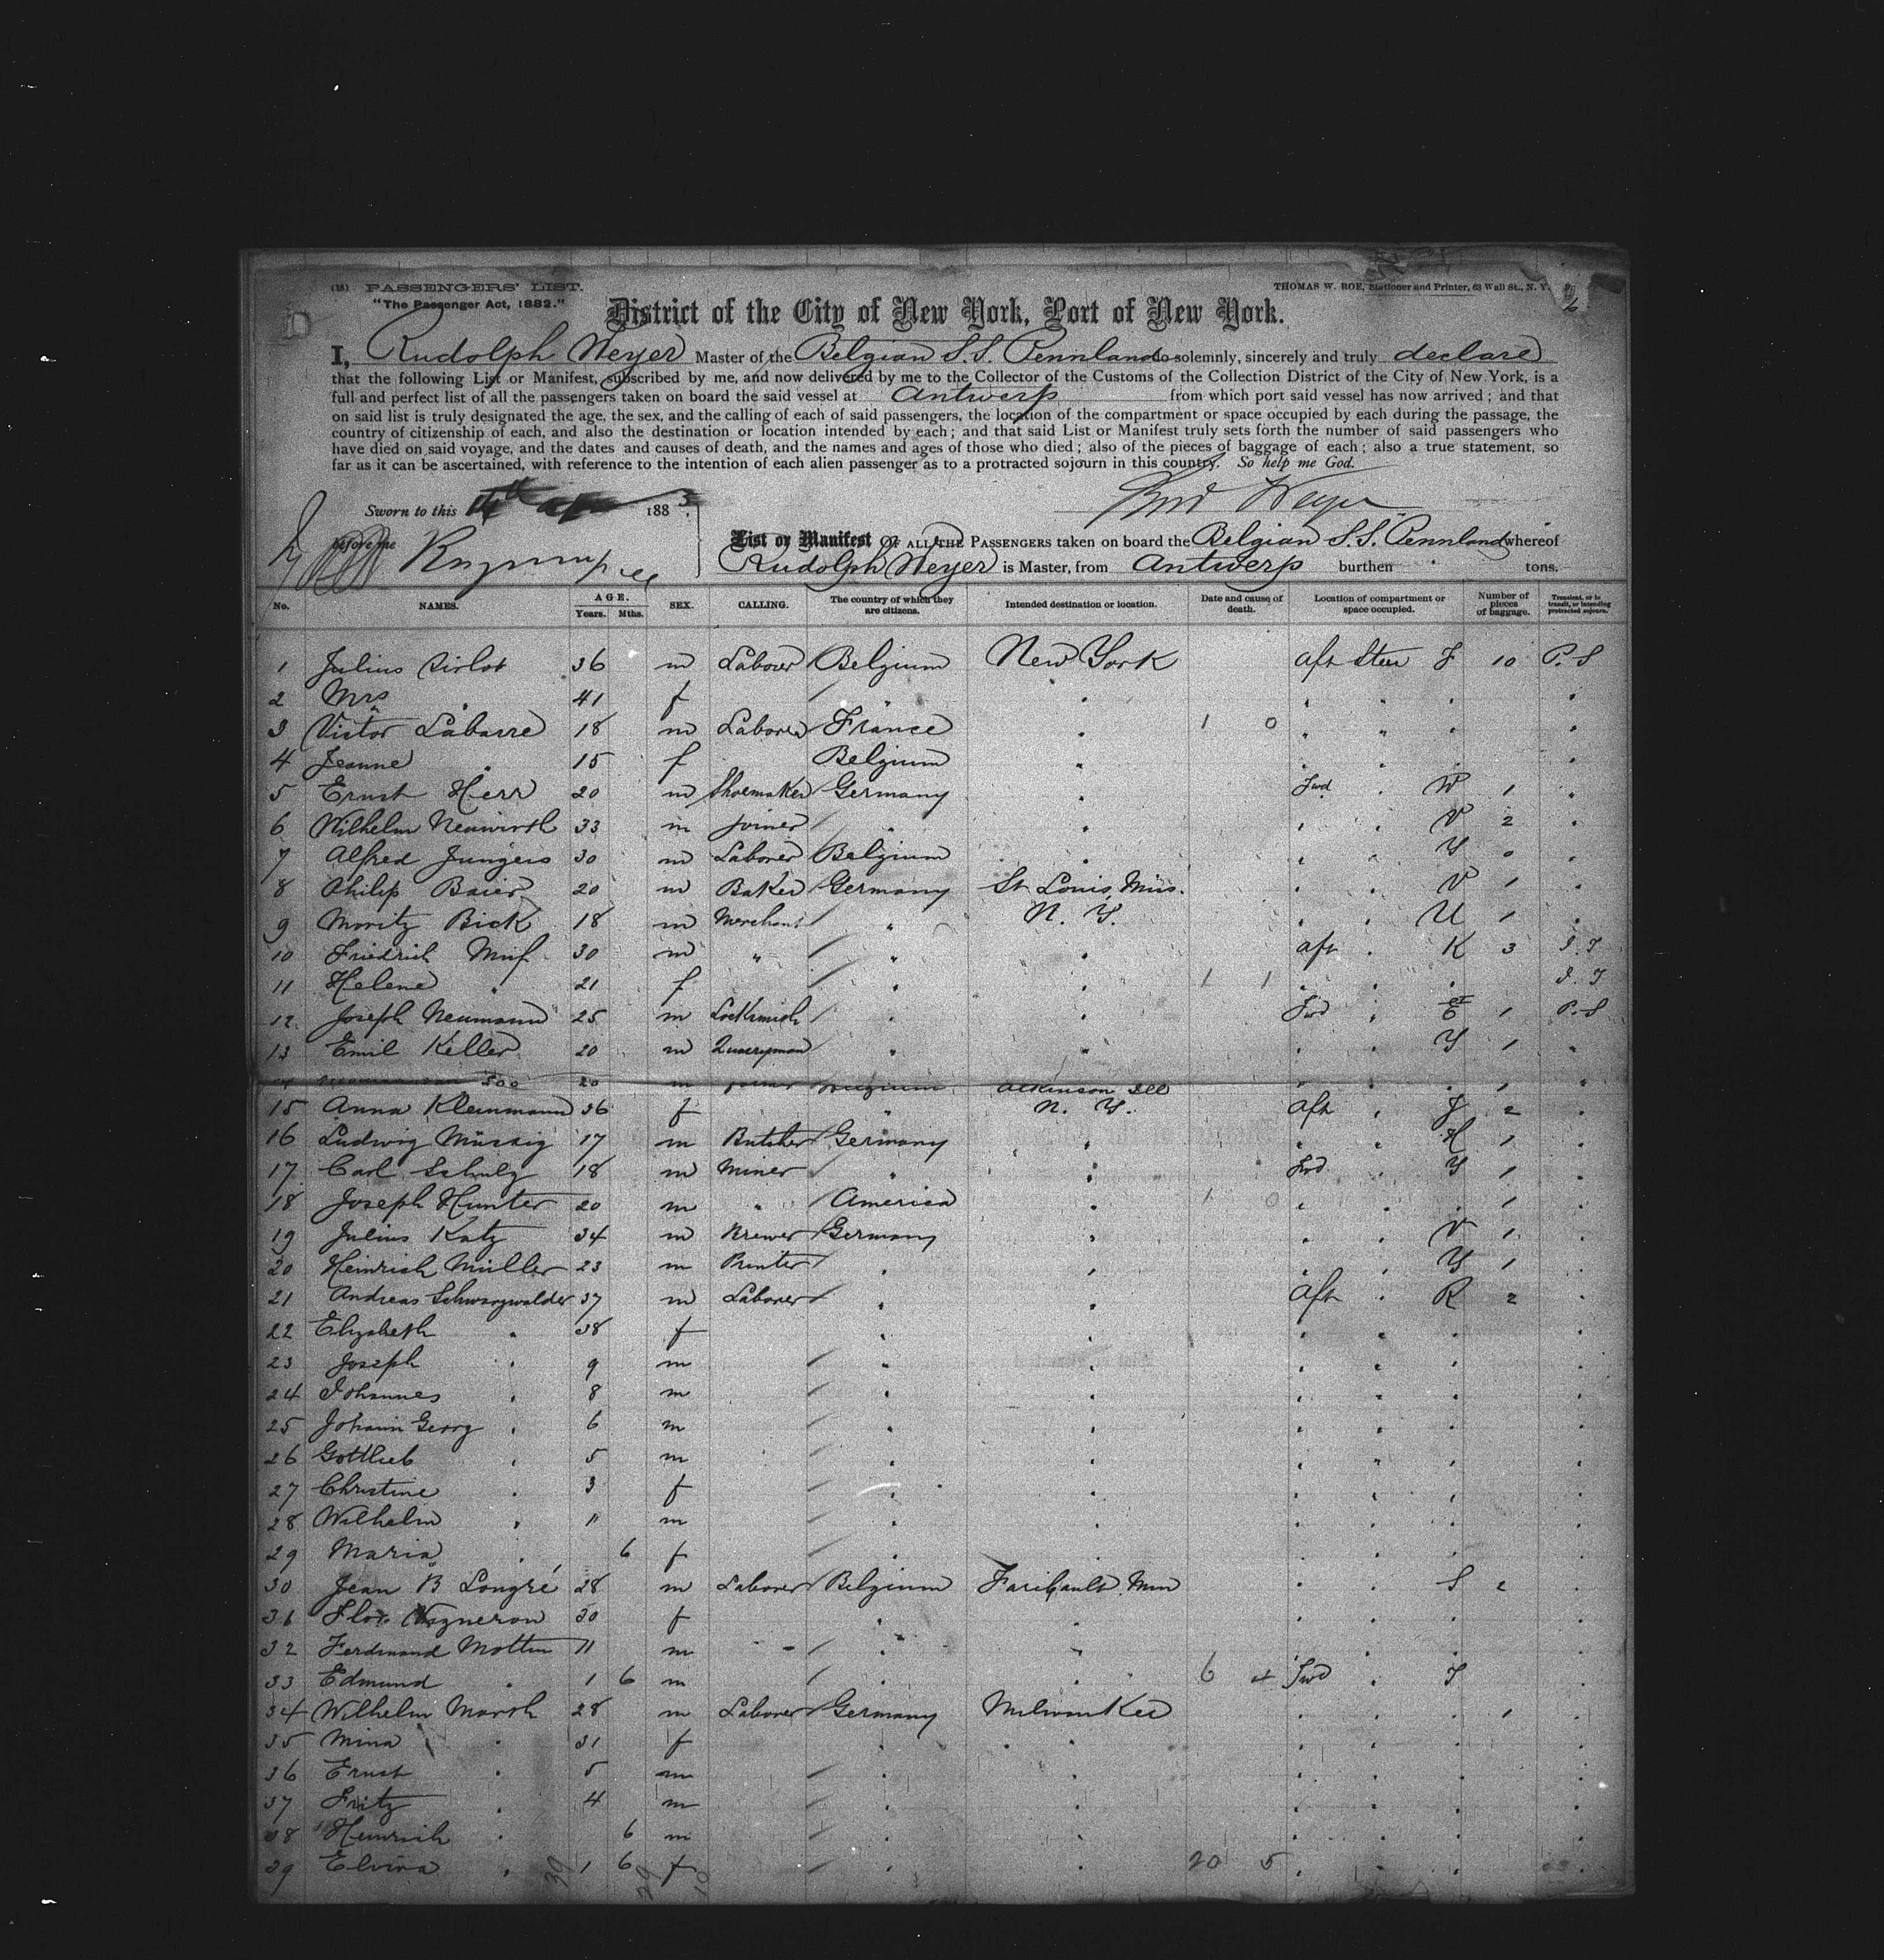 (18) PASSENGERS' LIST.
THOMAS W. ROE, Stationer and Printer, 63 Wall St., N. Y.
"The Passenger Act, 1882."
District of the City of New York, Port of New York.
I, Rudolph Weyer Master of the Belgian S.S. Pennland do solemnly, sincerely and truly declare
that the following List or Manifest, subscribed by me, and now delivered by me to the Collector of the Customs of the Collection District of the City of New York, is a
full and perfect list of all the passengers taken on board the said vessel at Antwerp from which port said vessel has now arrived; and that
on said list is truly designated the age, the sex, and the calling of each of said passengers, the location of the compartment or space occupied by each during the passage, the
country of citizenship of each, and also the destination or location intended by each; and that said List or Manifest truly sets forth the number of said passengers who
have died on said voyage, and the dates and causes of death, and the names and ages of those who died; also of the pieces of baggage of each; also a true statement, so
far as it can be ascertained, with reference to the intention of each alien passenger as to a protracted sojourn in this country. So help me God.
Rud Weyer
Sworn to this 14th 1883
before me
List or Manifest OF ALL THE PASSENGERS taken on board the Belgian S.S. Pennland whereof
Rudolph Weyer is Master, from Antwerp burthen tons.
No. NAMES. AGE. Years. Mths. SEX. CALLING. The country of which they are citizens. Intended destination or location. Date and cause of death. Location of compartment or space occupied. Number of pieces of baggage. Transient, or in transit, or intending protracted sojourn.
1 Julius 36 m Laborer Belgium New York aft Steer J 10 P.S
2 Mrs " 41 f " " " " " "
3 Victor Labarre 18 m Laborer France " 1 0 " " " "
4 Jeanne " 15 f Belgium " " " " "
5 Ernst Herr 20 m Shoemaker Germany " Fwd " W 1 "
6 Wilhelm Neuwirth 33 m Joiner " " " " V 2 "
7 Alfred Jungers 30 m Laborer Belgium " " " Y 0 "
8 Philip Baier 20 m Baker Germany St Louis Miss. " " V 1 "
9 Moritz Bick 18 m Merchant " N. Y. " " U 1 "
10 Friedrich 30 m " " " aft " K 3
11 Helene " 21 f " " 1 1 " " "
12 Joseph Neumann 25 m Locksmith " " Fwd " 1 P.S
13 Emil Keller 20 m Quarryman " " " " Y 1 "
20 m Belgium Atkinson Ill " " " 1 "
15 Anna Kleinmann 36 f " N. Y. Aft " J 2 "
16 Ludwig Müssig 17 m Butcher Germany " " " H 1 "
17 Carl Schulz 18 m Miner " " Fwd " Y 1 "
18 Joseph Hunter 20 m " America " 1 0 " " " 1 "
19 Julius Katz 34 m Brewer Germany " " " V 1 "
20 Heinrich Müller 23 m " " " " Y 1 "
21 Andreas Schwarzwalder 37 m Laborer " " Aft " R 2 "
22 Elizabeth " 38 f " " " " " "
23 Joseph " 9 m " " " " " "
24 Johannes " 8 m " " " " " "
25 Johann Georg " 6 m " " " " " "
26 Gottlieb " 5 m " " " " " "
27 Christine " 3 f " " " " " "
28 Wilhelm " 11 m " " " " " "
29 Maria " 6 f " " " " " "
30 Jean B Longré 28 m Laborer Belgium Faribault Min " " S 2 "
31 Flor. Vigneron 30 f " " " " " "
32 Ferdinand Mottin 11 m " " " " " " "
33 Edmund " 1 6 m " " 6 4 Fwd " "
34 Wilhelm Marsh 28 m Laborer Germany Milwaukee " " " 1 "
35 Mina " 31 f " " " " " "
36 Ernst " 5 m " " " " " "
37 Fritz " 4 m " " " " " "
38 Heinrich " 6 m " " " " " "
39 Elvira " 1 6 f " " 20 5 " " " "
39 29 10